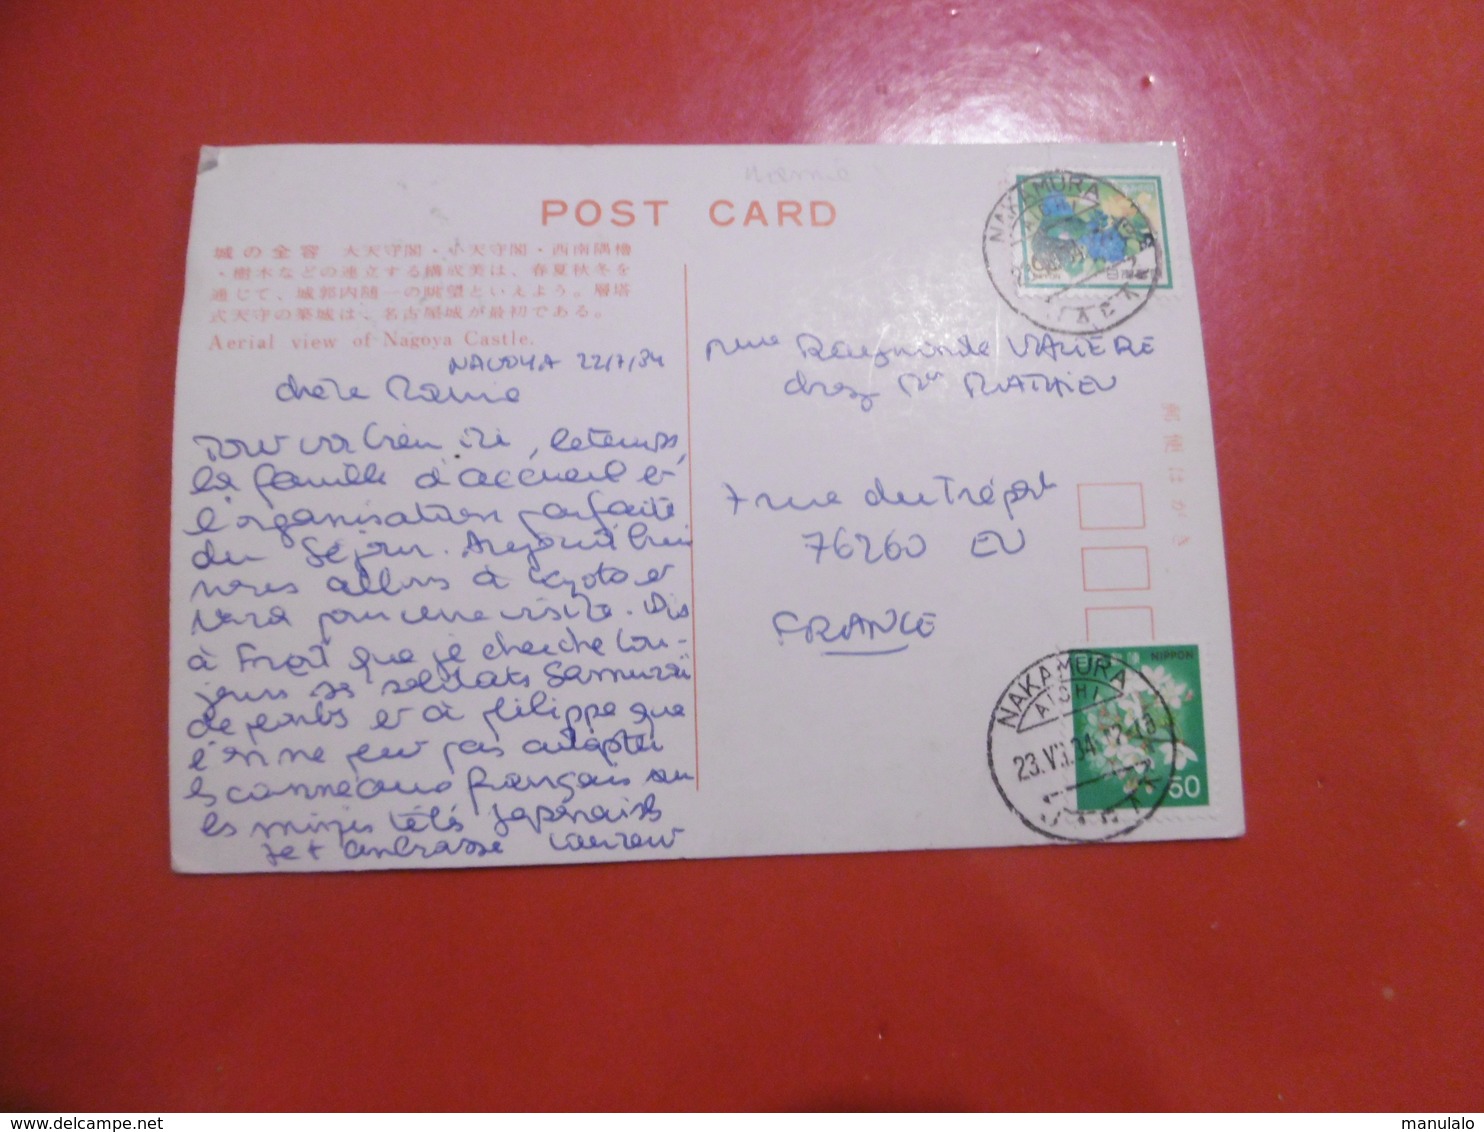 POST CARD
城の全容 大天守閣・小天守閣・西南隅櫓
・樹木などの連立する構成美は、春夏秋冬を
通じて、城郭内随一の眺望といえよう。層塔
式天守の築城は、名古屋城が最初である。
Aerial view of Nagoya Castle.
NAGOYA 22/7/84
chère Mamie
Tout va bien ici, le temps,
la famille d'accueil et
l'organisation parfaite
du séjour. Aujourd'hui
nous allons à Kyoto et
Nara pour une visite. Dis
à que je cherche tou-
jours ses soldats Samuraï
de plombs et à philippe que
l'on ne peut pas adapter
les français sur
les minis télés japonaises
Je t'embrasse Laurent
Mme Raymonde VALIERE
chez Mr MATHIEU
7 rue du Tréport
76260 EU
FRANCE
郵便はがき
NAKAMURA
AICHI
JAPAN
日本郵便
NAKAMURA
AICHI
23.VII.84.12-18
JAPAN
NIPPON
50
manulalo